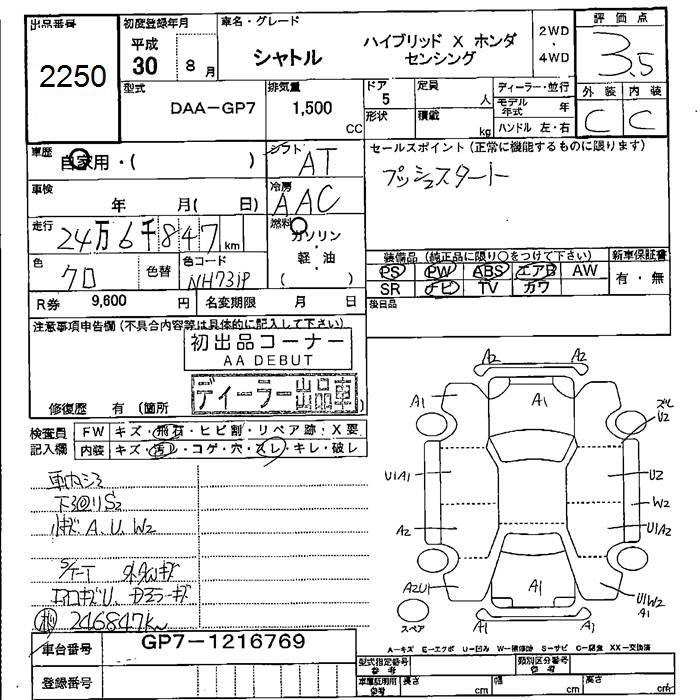 出品番号
2250
初度登録年月
平成
30 8月
車名・グレード
シャトル ハイブリッド X ホンダ
センシング
2WD
・
4WD
評価点
3.5
外装 内装
C C
型式
DAA-GP7
排気量
1,500
CC
ドア
5
形状
定員
人
積載
kg
ディーラー・並行
モデル年式 年
ハンドル 左・右
車歴
自家用・( )
シフト
AT
車検
年 月( 日)
冷房
AAC
走行
24万6千847km
燃料
ガソリン
・
軽・油
( )
色
クロ
色替
色コード
NH731P
R券 9,600 円
名変期限 月 日
セールスポイント(正常に機能するものに限ります)
プッシュスタート
装備品(純正品に限り○をつけて下さい)
PS PW ABS エアB AW
SR ナビ TV カワ
新車保証書
有・無
後日品
注意事項申告欄(不具合内容等は具体的に記入して下さい)
初出品コーナー
AA DEBUT
ディーラー出品車
修復歴 有(箇所
検査員記入欄
FW キズ・飛石・ヒビ割・リペア跡・X要
内装 キズ・汚レ・コゲ・穴・スレ・キレ・破レ
車内シミ
下回りS2
小キズ A.U.W2
246847km
車台番号 GP7-1216769
登録番号
A2 A2
A1 A1
ズレ
U2
U1A1 U2
W2
A2 U1A2
A2U1 A1 U1W2
A1
スペア
A1
A-キズ E-エクボ U-凹み W-補修跡 S-サビ C-腐食 XX-交換済
型式指定番号
参考
類別区分番号
参考
車庫証明用
参考
長さ cm 幅 cm 高さ cm